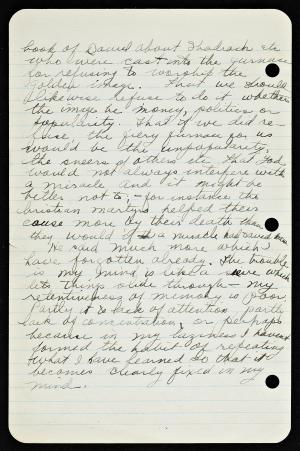 book of Daniel about Shadrach etc
who were cast into the furnace
for refusing to worship the
golden image. That we should
likewise refuse to do it whether
the image be money, politics or
popularity. That if we did re-
fuse the fiery furnace for us
would be the unpopularity,
the sneers of others etc. That God
would not always interfere with
a miracle and it might be
better not to, - for instance the
Christian martyrs helped their
cause more by their death than
they would if a miracle had saved them
He said much more which I
have forgotten already. The trouble
is my mind is like a sieve which
lets things slide through - my
retentiveness of memory is poor.
Partly it is lack of attention, partly
lack of concentration, or perhaps
because in my laziness I haven't
formed the habit of repeating
what I have learned so that it
becomes clearly fixed in my
mind.